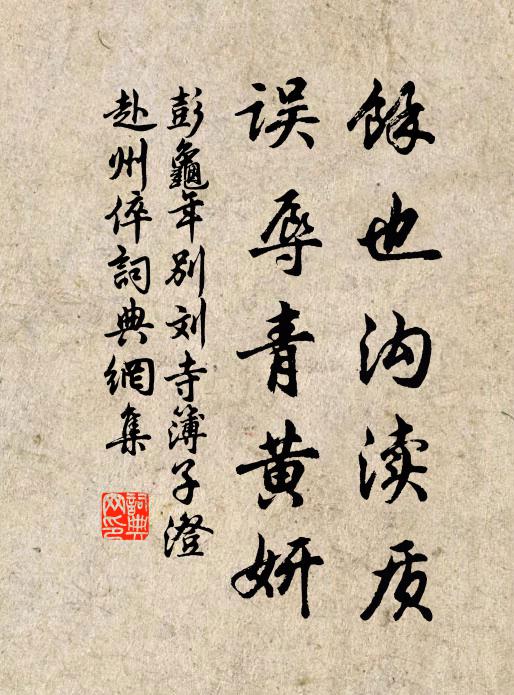 馀也沟渎质
误辱青黄妍
彭龜年别刘寺簿子澄
赴州倅詞典網集
詞典
网印